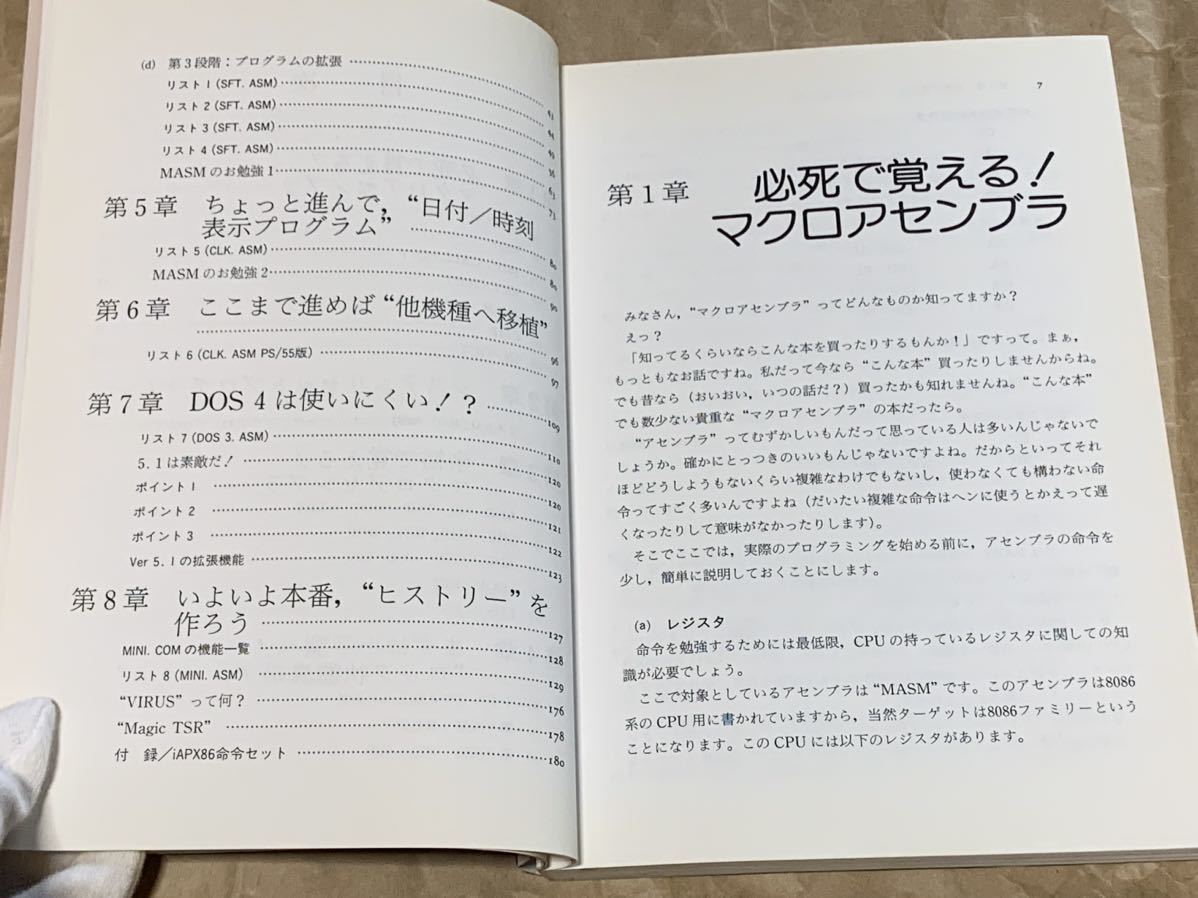 (d) 第3段階：プログラムの拡張 ……………… 43
リスト1 (SFT. ASM) ……………… 44
リスト2 (SFT. ASM) ……………… 49
リスト3 (SFT. ASM) ……………… 56
リスト4 (SFT. ASM) ……………… 63
MASMのお勉強1 ……………… 71
第5章 ちょっと進んで，“日付／時刻
表示プログラム” ……………… 80
リスト5 (CLK. ASM) ……………… 80
MASMのお勉強2 ……………… 90
第6章 ここまで進めば“他機種へ移植”
……………… 96
リスト6 (CLK. ASM PS/55版) ……………… 97
第7章 DOS 4は使いにくい！？ ……………… 109
リスト7 (DOS 3. ASM) ……………… 110
5. 1は素敵だ！ ……………… 120
ポイント1 ……………… 120
ポイント2 ……………… 121
ポイント3 ……………… 122
Ver 5. 1の拡張機能 ……………… 123
第8章 いよいよ本番，“ヒストリー”を
作ろう ……………… 127
MINI. COMの機能一覧 ……………… 128
リスト8 (MINI. ASM) ……………… 129
“VIRUS”って何？ ……………… 176
“Magic TSR” ……………… 178
付 録／iAPX86命令セット ……………… 180
7
第1章 必死で覚える！
マクロアセンブラ
みなさん，“マクロアセンブラ”ってどんなものか知ってますか？
えっ？
「知ってるくらいならこんな本を買ったりするもんか！」ですって。まぁ，
もっともなお話ですね。私だって今なら“こんな本”買ったりしませんからね。
でも昔なら（おいおい，いつの話だ？）買ったかも知れませんね。“こんな本”
でも数少ない貴重な“マクロアセンブラ”の本だったら。
“アセンブラ”ってむずかしいもんだって思っている人は多いんじゃないで
しょうか。確かにとっつきのいいもんじゃないですよね。だからといってそれ
ほどどうしようもないくらい複雑なわけでもないし，使わなくても構わない命
令ってすごく多いんですよね（だいたい複雑な命令はヘンに使うとかえって遅
くなったりして意味がなかったりします）。
そこでここでは，実際のプログラミングを始める前に，アセンブラの命令を
少し，簡単に説明しておくことにします。
(a) レジスタ
命令を勉強するためには最低限，CPUの持っているレジスタに関しての知
識が必要でしょう。
ここで対象としているアセンブラは“MASM”です。このアセンブラは8086
系のCPU用に書かれていますから，当然ターゲットは8086ファミリーという
ことになります。このCPUには以下のレジスタがあります。